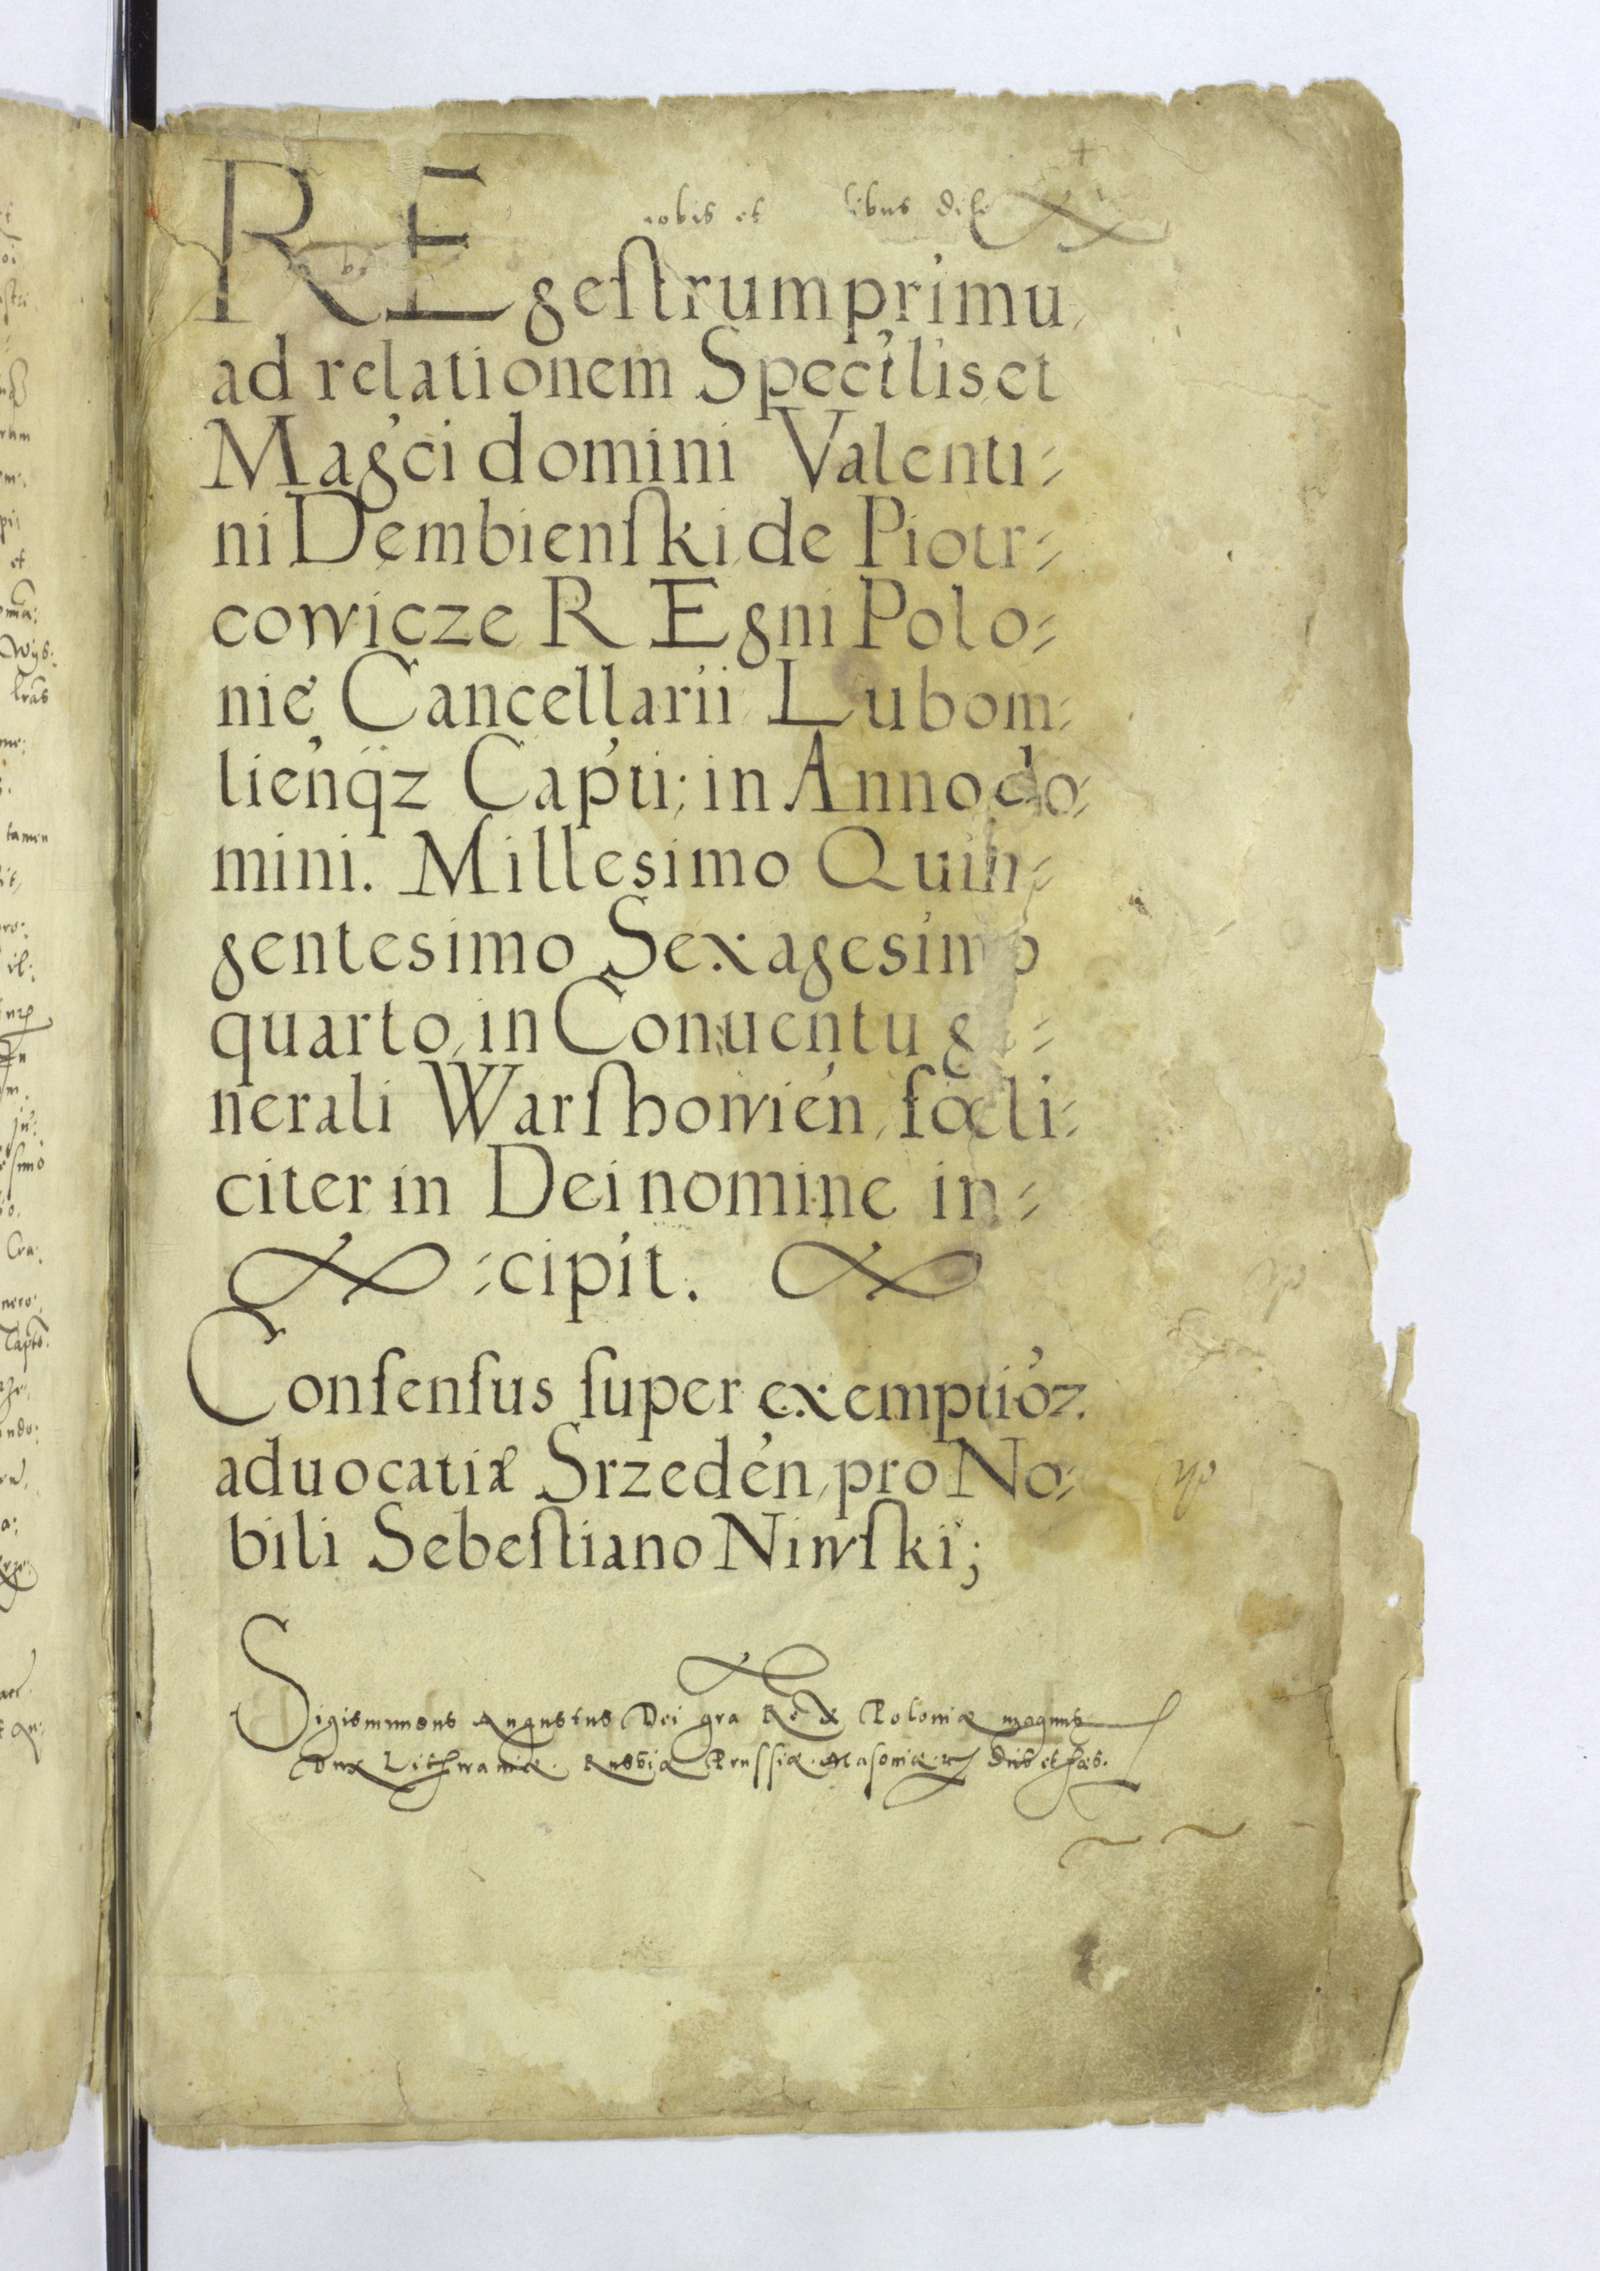 nobis et
REgestrum primu
ad relationem Spectlis et
Magci domini Valenti⸗
ni Dembienſki de Piotr⸗
cowicze REgni Polo⸗
nię Cancellarii Lubom⸗
lieńq̃z Capti; in Anno do⸗
mini. Millesimo Quin⸗
gentesimo Sexagesimo
quarto, in Conuentu ge⸗
nerali Warſhowień, fœli⸗
citer in Dei nomine in⸗
⸗cipit.
Conſenſus ſuper exemptióz
aduocatiæ Srzedeń, pro No⸗
bili Sebeſtiano Niwſki;
Sigismundus Augustus Dei gra Rex Poloniæ magnus
Dux Lithwaniæ. Russiæ Prussiæ. Masoviæ